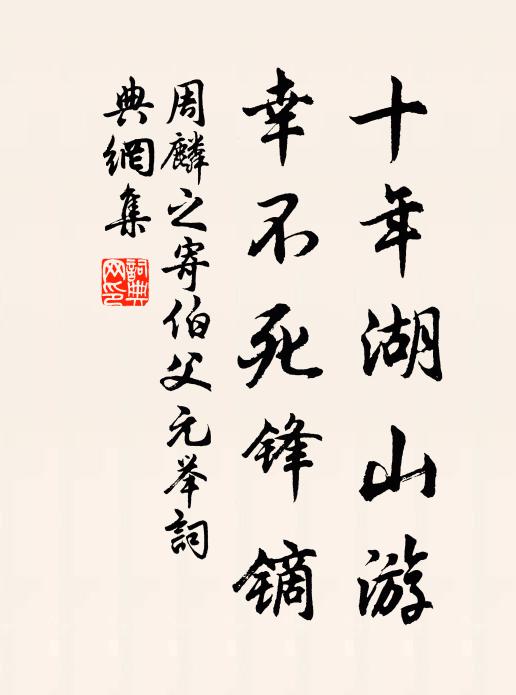 十年湖山游
幸不死锋镝
周麟之寄伯父元举詞
典網集
詞典
网印